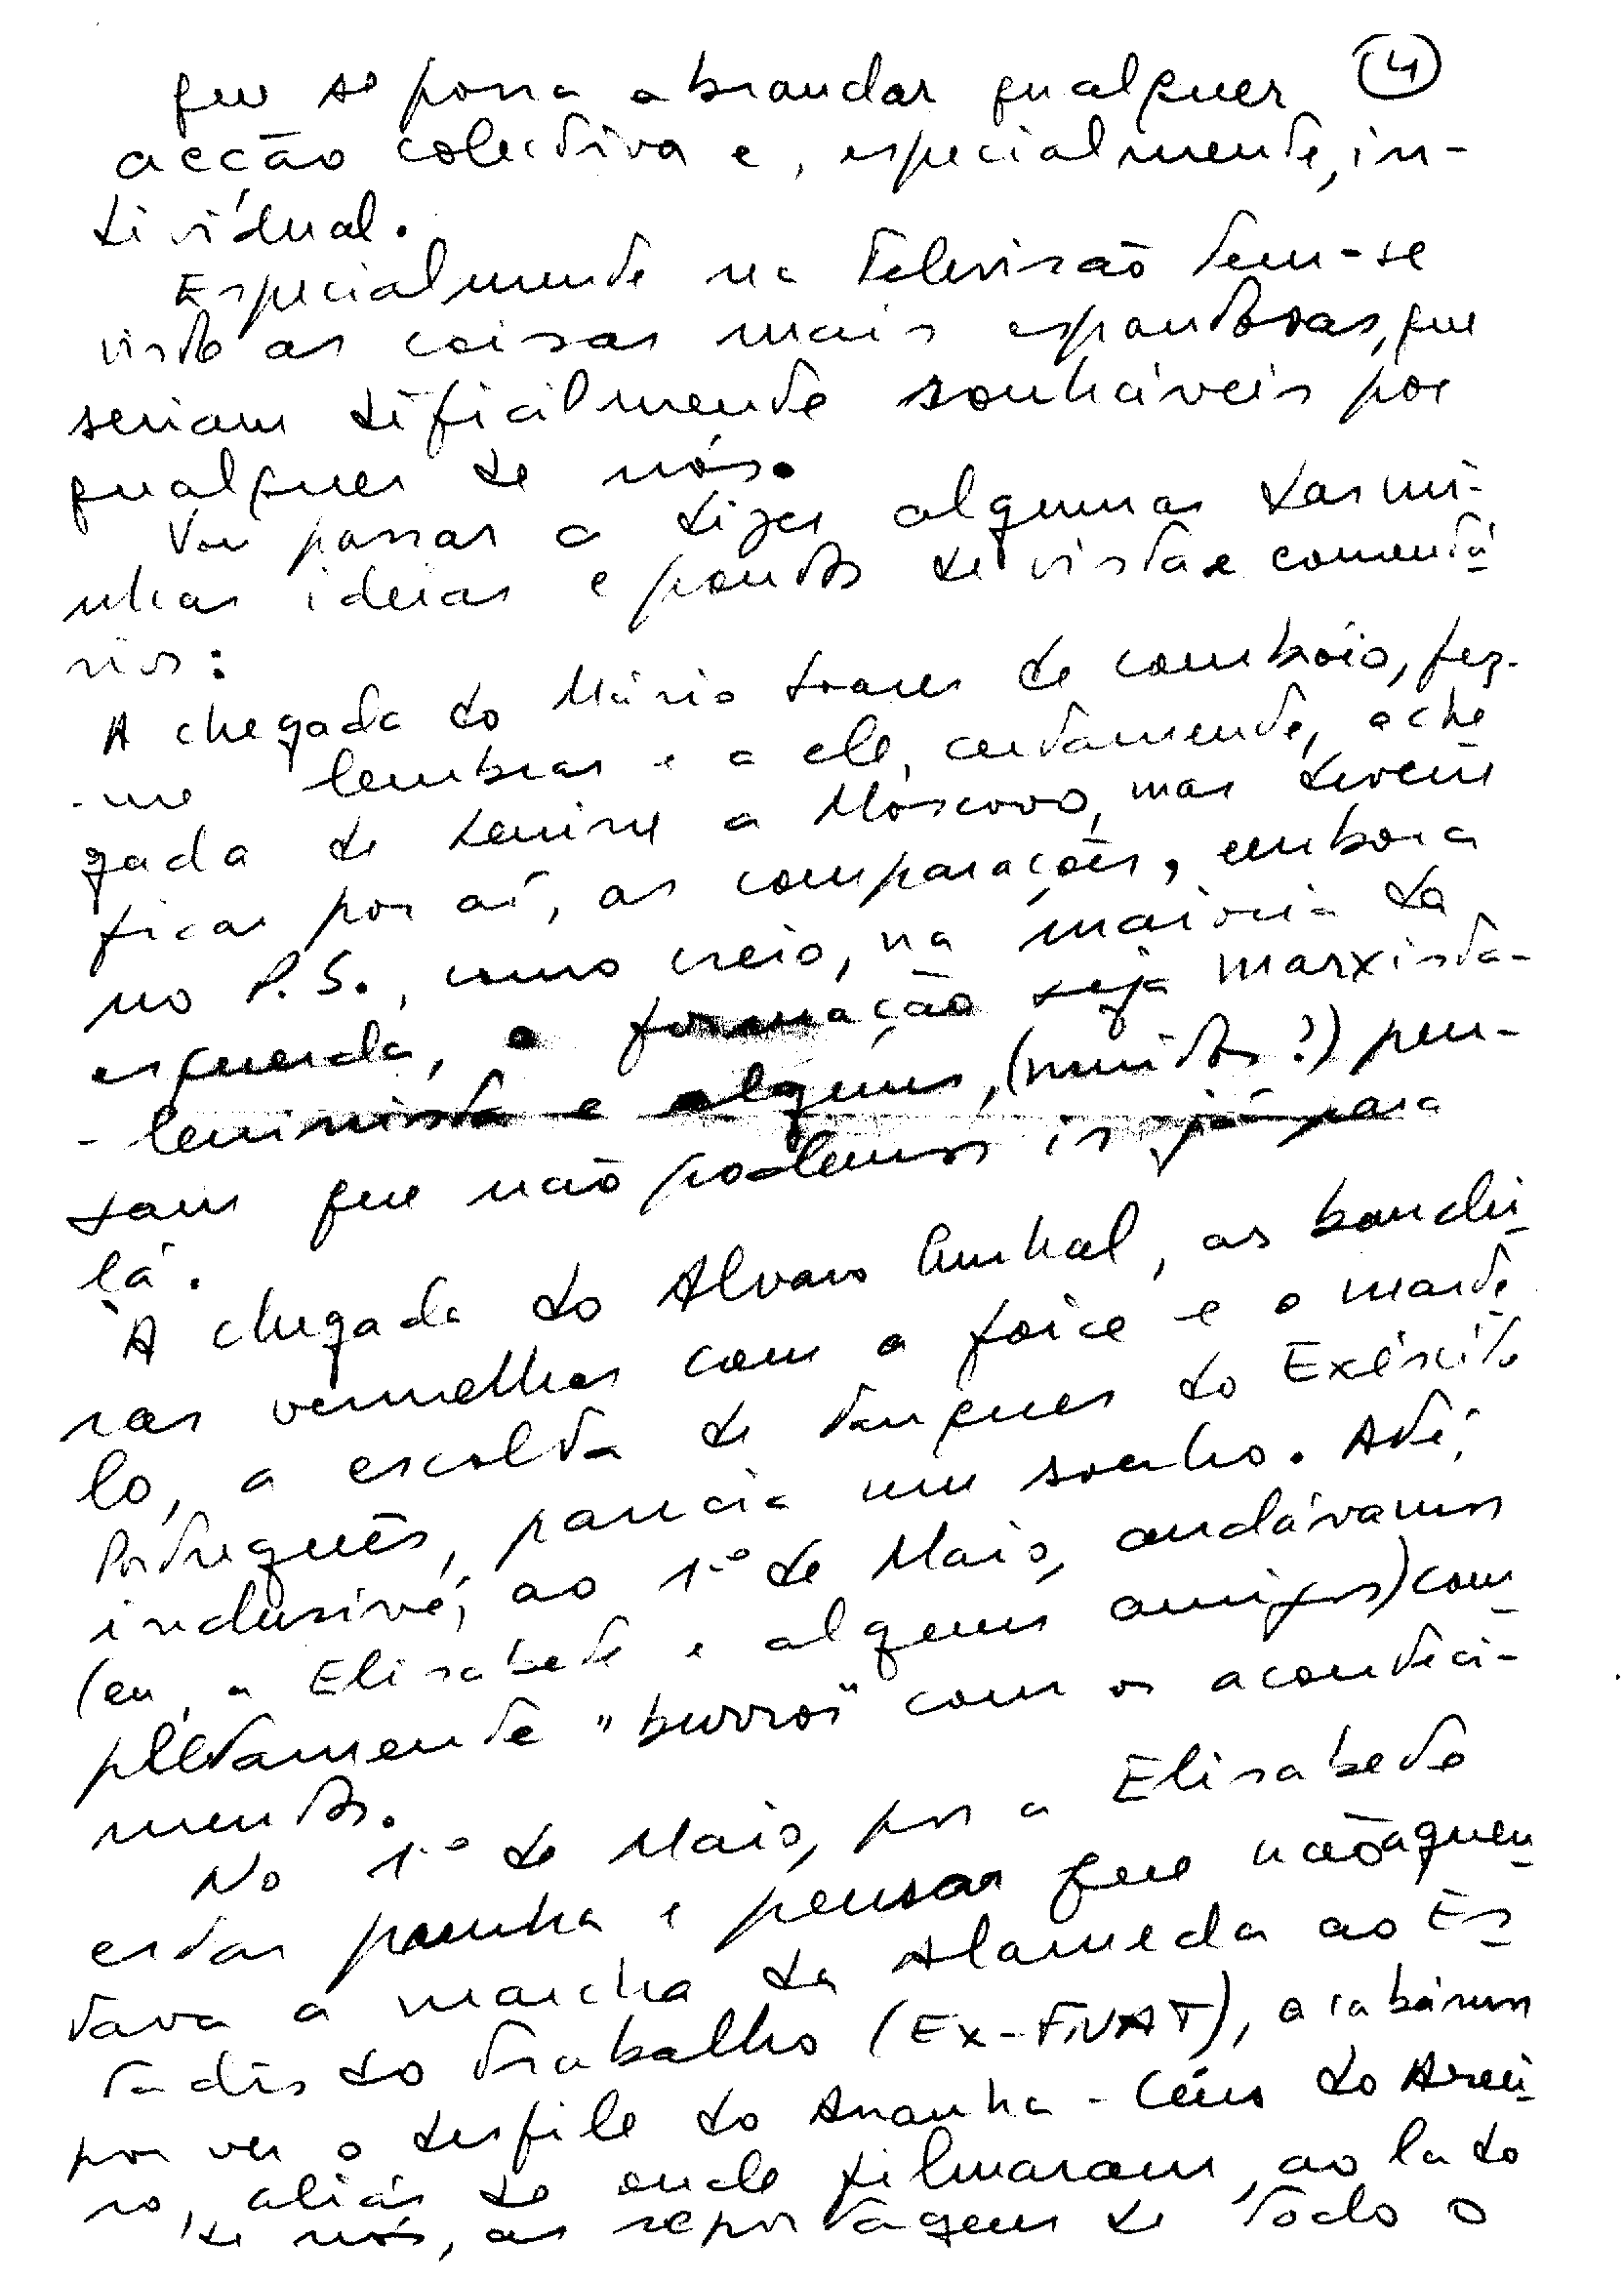 (4)
que se possa abrandar qualquer
acção colectiva e, especialmente, in-
dividual.
Especialmente na televisão tem-se
visto as coisas mais espantosas, que
seriam dificilmente sonháveis por
qualquer de nós.
Vou passar a dizer algumas das mi-
nhas ideias e pontos de vista e comentá-
rios:
A chegada do Mário Soares de comboio, fez-
-me lembrar e a ele, certamente, a che
gada de Lenine a Moscovo, mas devem
ficar por aí, as comparações, embora
no P.S., como creio, na maioria da
esquerda, a formação seja marxista-
-leninista e alguns, (muitos?) pen-
sam que não podemos ir já para
lá.
À chegada do Alvaro Cunhal, as bandei-
ras vermelhas com a foice e o marte-
lo, a escolta de tanques do Exército
Português, parecia um sonho. Até,
inclusivé, ao 1.º de Maio, andávamos
(eu, a Elisabete e alguns amigos) com
pletamente "burros" com os aconteci-
mentos.
No 1.º de Maio, por a Elisabete
estar prenha e pensar que não aguen-
tava a marcha da Alameda ao Es-
tádio do Trabalho (Ex-FNAT), acabámos
por ver o desfile do Arranha-Céus do Areei-
ro, aliás de onde filmaram, ao lado
de nós, as reportagens de todo o